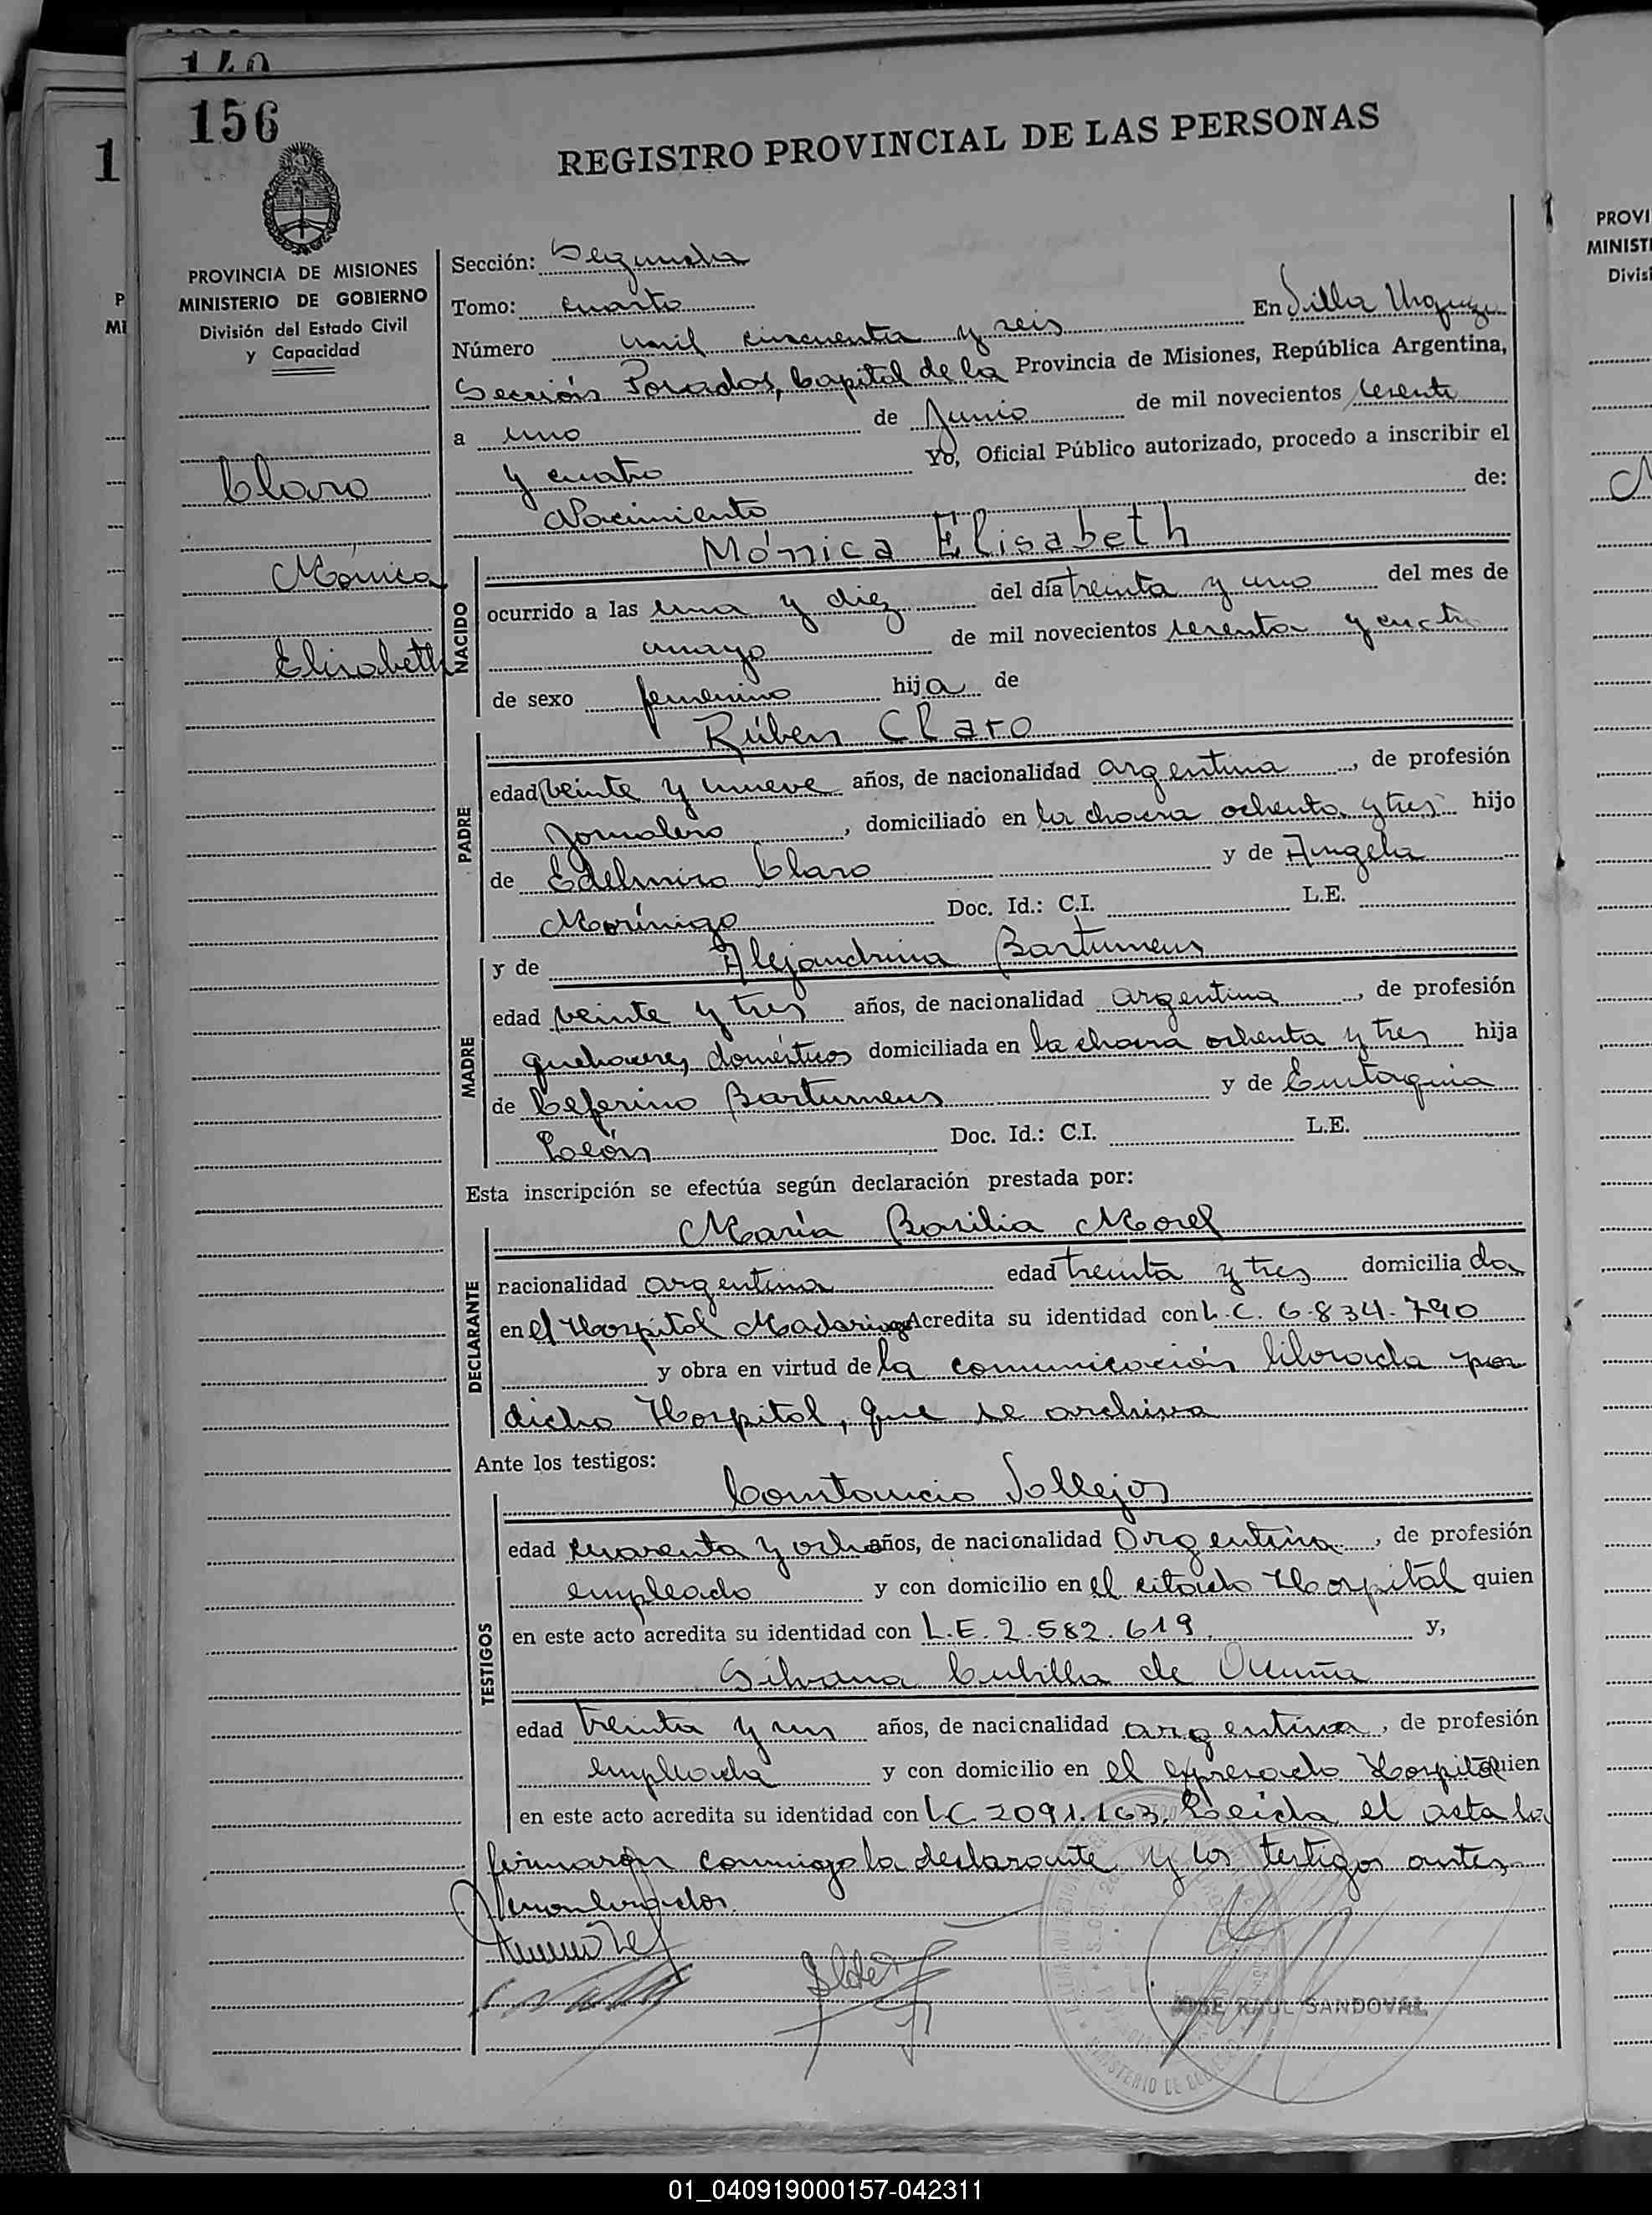 140
156
REGISTRO PROVINCIAL DE LAS PERSONAS
PROVINCIA DE MISIONES
MINISTERIO DE GOBIERNO
División del Estado Civil
y Capacidad
Claro
Mónica
Elisabeth
Sección: Segunda
Tomo: cuarto
Número mil cincuenta y seis En Villa Urquiza
Sección Posadas, Capital de la Provincia de Misiones, República Argentina,
a uno de Junio de mil novecientos sesenta
y cuatro Yo, Oficial Público autorizado, procedo a inscribir el
Nacimiento de:
NACIDO
Mónica Elisabeth
ocurrido a las una y diez del día treinta y uno del mes de
mayo de mil novecientos sesenta y cuatro
de sexo femenino hija de
PADRE
Rúben Claro
edad veinte y nueve años, de nacionalidad argentina, de profesión
Jornalero, domiciliado en la chacra ochenta y tres hijo
de Edelmiro Claro y de Angela
Morínigo Doc. Id.: C.I. L.E.
MADRE
y de Alejandrina Bartumeus
edad veinte y tres años, de nacionalidad argentina, de profesión
quehaceres domésticos domiciliada en la chacra ochenta y tres hija
de Ceferino Bartumeus y de Eustaquia
León Doc. Id.: C.I. L.E.
Esta inscripción se efectúa según declaración prestada por:
DECLARANTE
María Basilia Morel
nacionalidad argentina edad treinta y tres domiciliada
en el Hospital Madariaga Acredita su identidad con L.C. 6.834.790
y obra en virtud de la comunicación librada por
dicho Hospital, que se archiva
Ante los testigos:
TESTIGOS
Constancio Vallejos
edad cuarenta y ocho años, de nacionalidad Argentina, de profesión
empleado y con domicilio en el citado Hospital quien
en este acto acredita su identidad con L.E. 2.582.619 y,
Silvana Cubilla de Acuña
edad treinta y un años, de nacionalidad argentina, de profesión
empleada y con domicilio en el expresado Hospital quien
en este acto acredita su identidad con L.C 2091.163. Leída el acta la
firmaron conmigo la declarante y los testigos antes
nombrados.
JOSE RAUL SANDOVAL
PROVI
MINISTE
Divisi
01_040919000157-042311